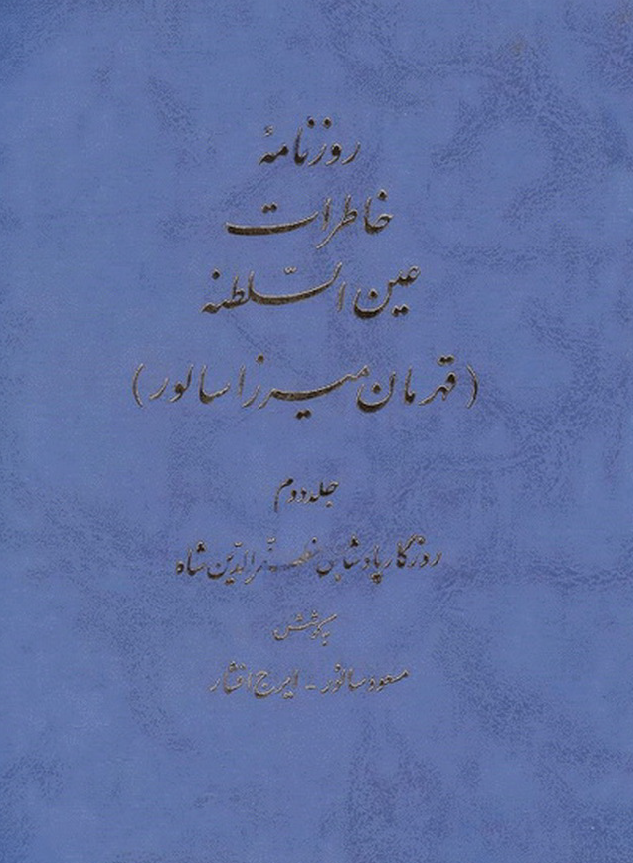 روزنامهٔ
خاطرات
عین السّلطنه
(قهرمان میرزا سالور)
جلد دوم
روزگار پادشاهی مظفّرالدّین شاه
به کوشش
مسعود سالور - ایرج افشار